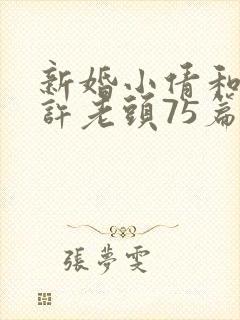 新婚小倩和
許老頭75篇
張夢雯